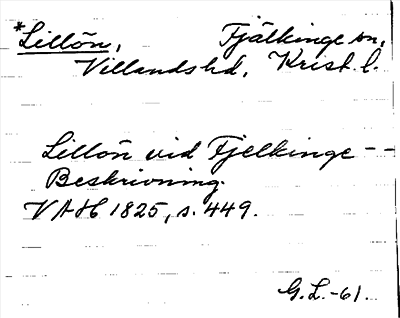 *Lillön, Fjälkinge sn,
Villands hd, Krist. l.
Lillön vid Fjelkinge - -
Beskrivning.
VAH 1825, s. 449.
G. L. -61.